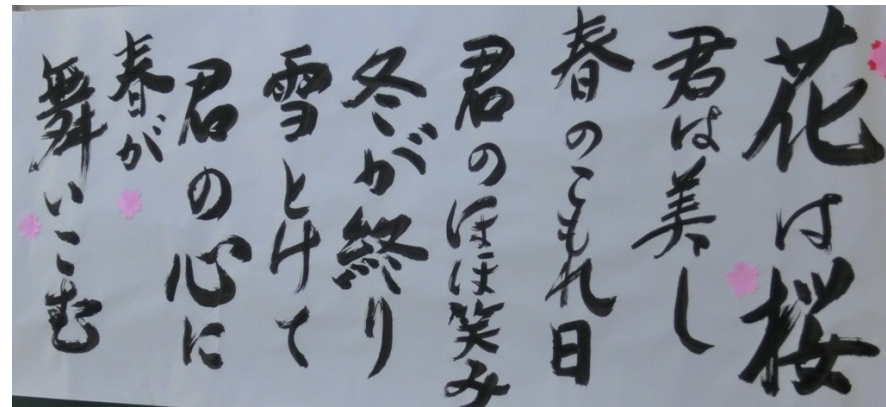 花は桜
君は美し
春のこもれ日
君のほほ笑み
冬が終り
雪とけて
君の心に
春が
舞いこむ